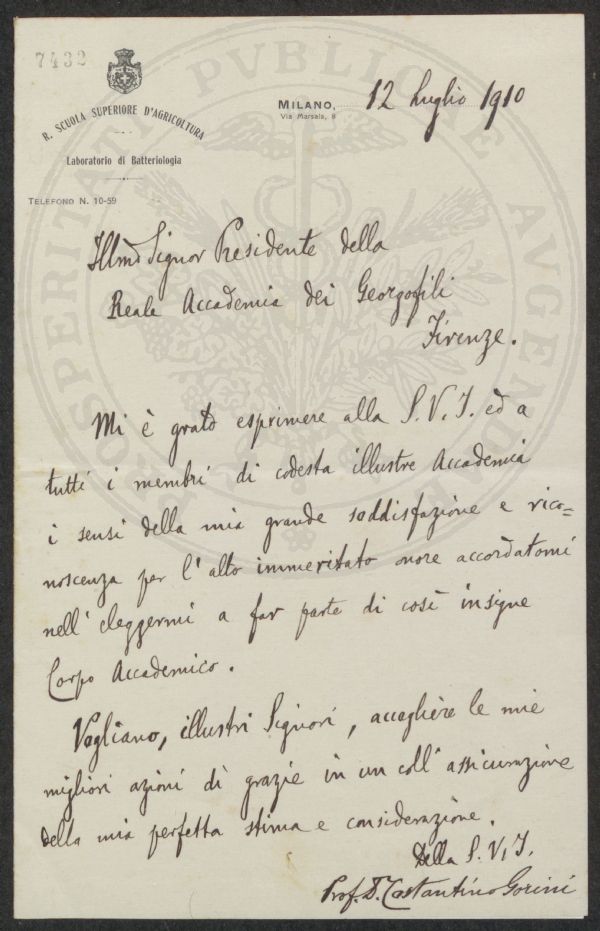 7432
R. SCUOLA SUPERIORE D'AGRICOLTURA
Laboratorio di Batteriologia
TELEFONO N. 10-59
MILANO, 12 Luglio 1910
Via Marsala, 8
PROSPERITATI PVBLICAE AVGENDAE
Illmo Signor Presidente della
Reale Accademia dei Georgofili
Firenze.
Mi è grato esprimere alla S.V.I. ed a
tutti i membri di codesta illustre Accademia
i sensi della mia grande soddisfazione e rico=
noscenza per l'alto immeritato onore accordatomi
nell'eleggermi a far parte di così insigne
Corpo Accademico.
Vogliano, illustri Signori, accogliere le mie
migliori azioni di grazie in un coll'assicurazione
della mia perfetta stima e considerazione.
Della S.V.I.
Prof. D. Costantino Gorini